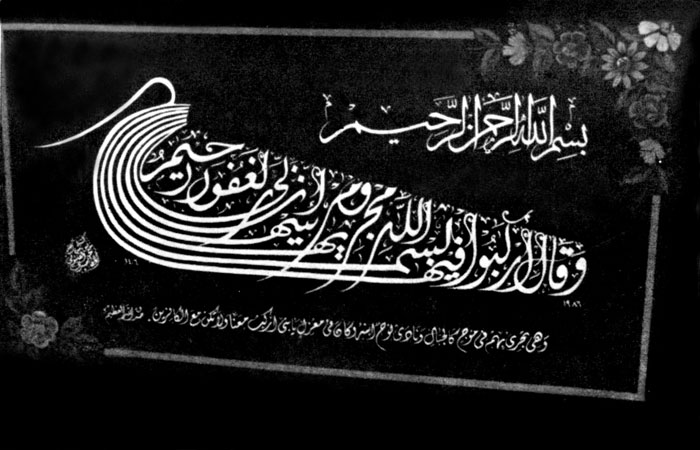 بسم الله الرحمن الرحيم
وقال اركبوا فيها بسم الله مجراها ومرساها إن ربي لغفور رحيم
١٤٠٦
١٩٨٦
وهي تجري بهم في موج كالجبال ونادى نوح ابنه وكان في معزل يا بني اركب معنا ولا تكن مع الكافرين . صدق الله العظيم